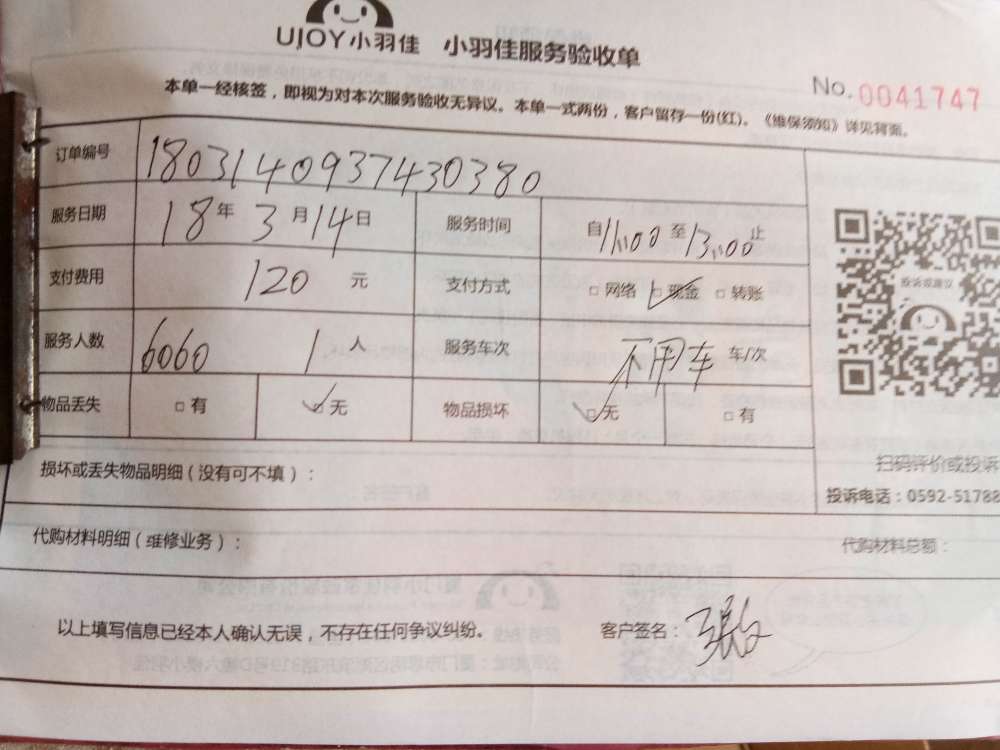 UJOY小羽佳 小羽佳服务验收单
No.0041747
本单一经核签，即视为对本次服务验收无异议。本单一式两份，客户留存一份(红)。《维保须知》详见背面。
订单编号 180314093743038​0
服务日期 18年3月14日 服务时间 自11:00至13:00止
支付费用 120元 支付方式 □网络 ☑现金 □转账
服务人数 6060 1人 服务车次 不用车 车/次
物品丢失 □有 ☑无 物品损坏 ☑无 □有
投诉或建议
损坏或丢失物品明细（没有可不填）：
扫码评价或投诉
投诉电话：0592-51788
代购材料明细（维修业务）：
代购材料总额：
以上填写信息已经本人确认无误，不存在任何争议纠纷。 客户签名：